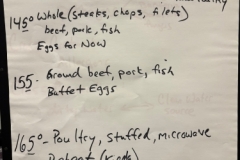 145° Whole (steaks, chops, filets)
beef, pork, fish
Eggs for Now
155° Ground beef, pork, fish
Buffet Eggs
165° - Poultry, Stuffed, microwave
Reheat